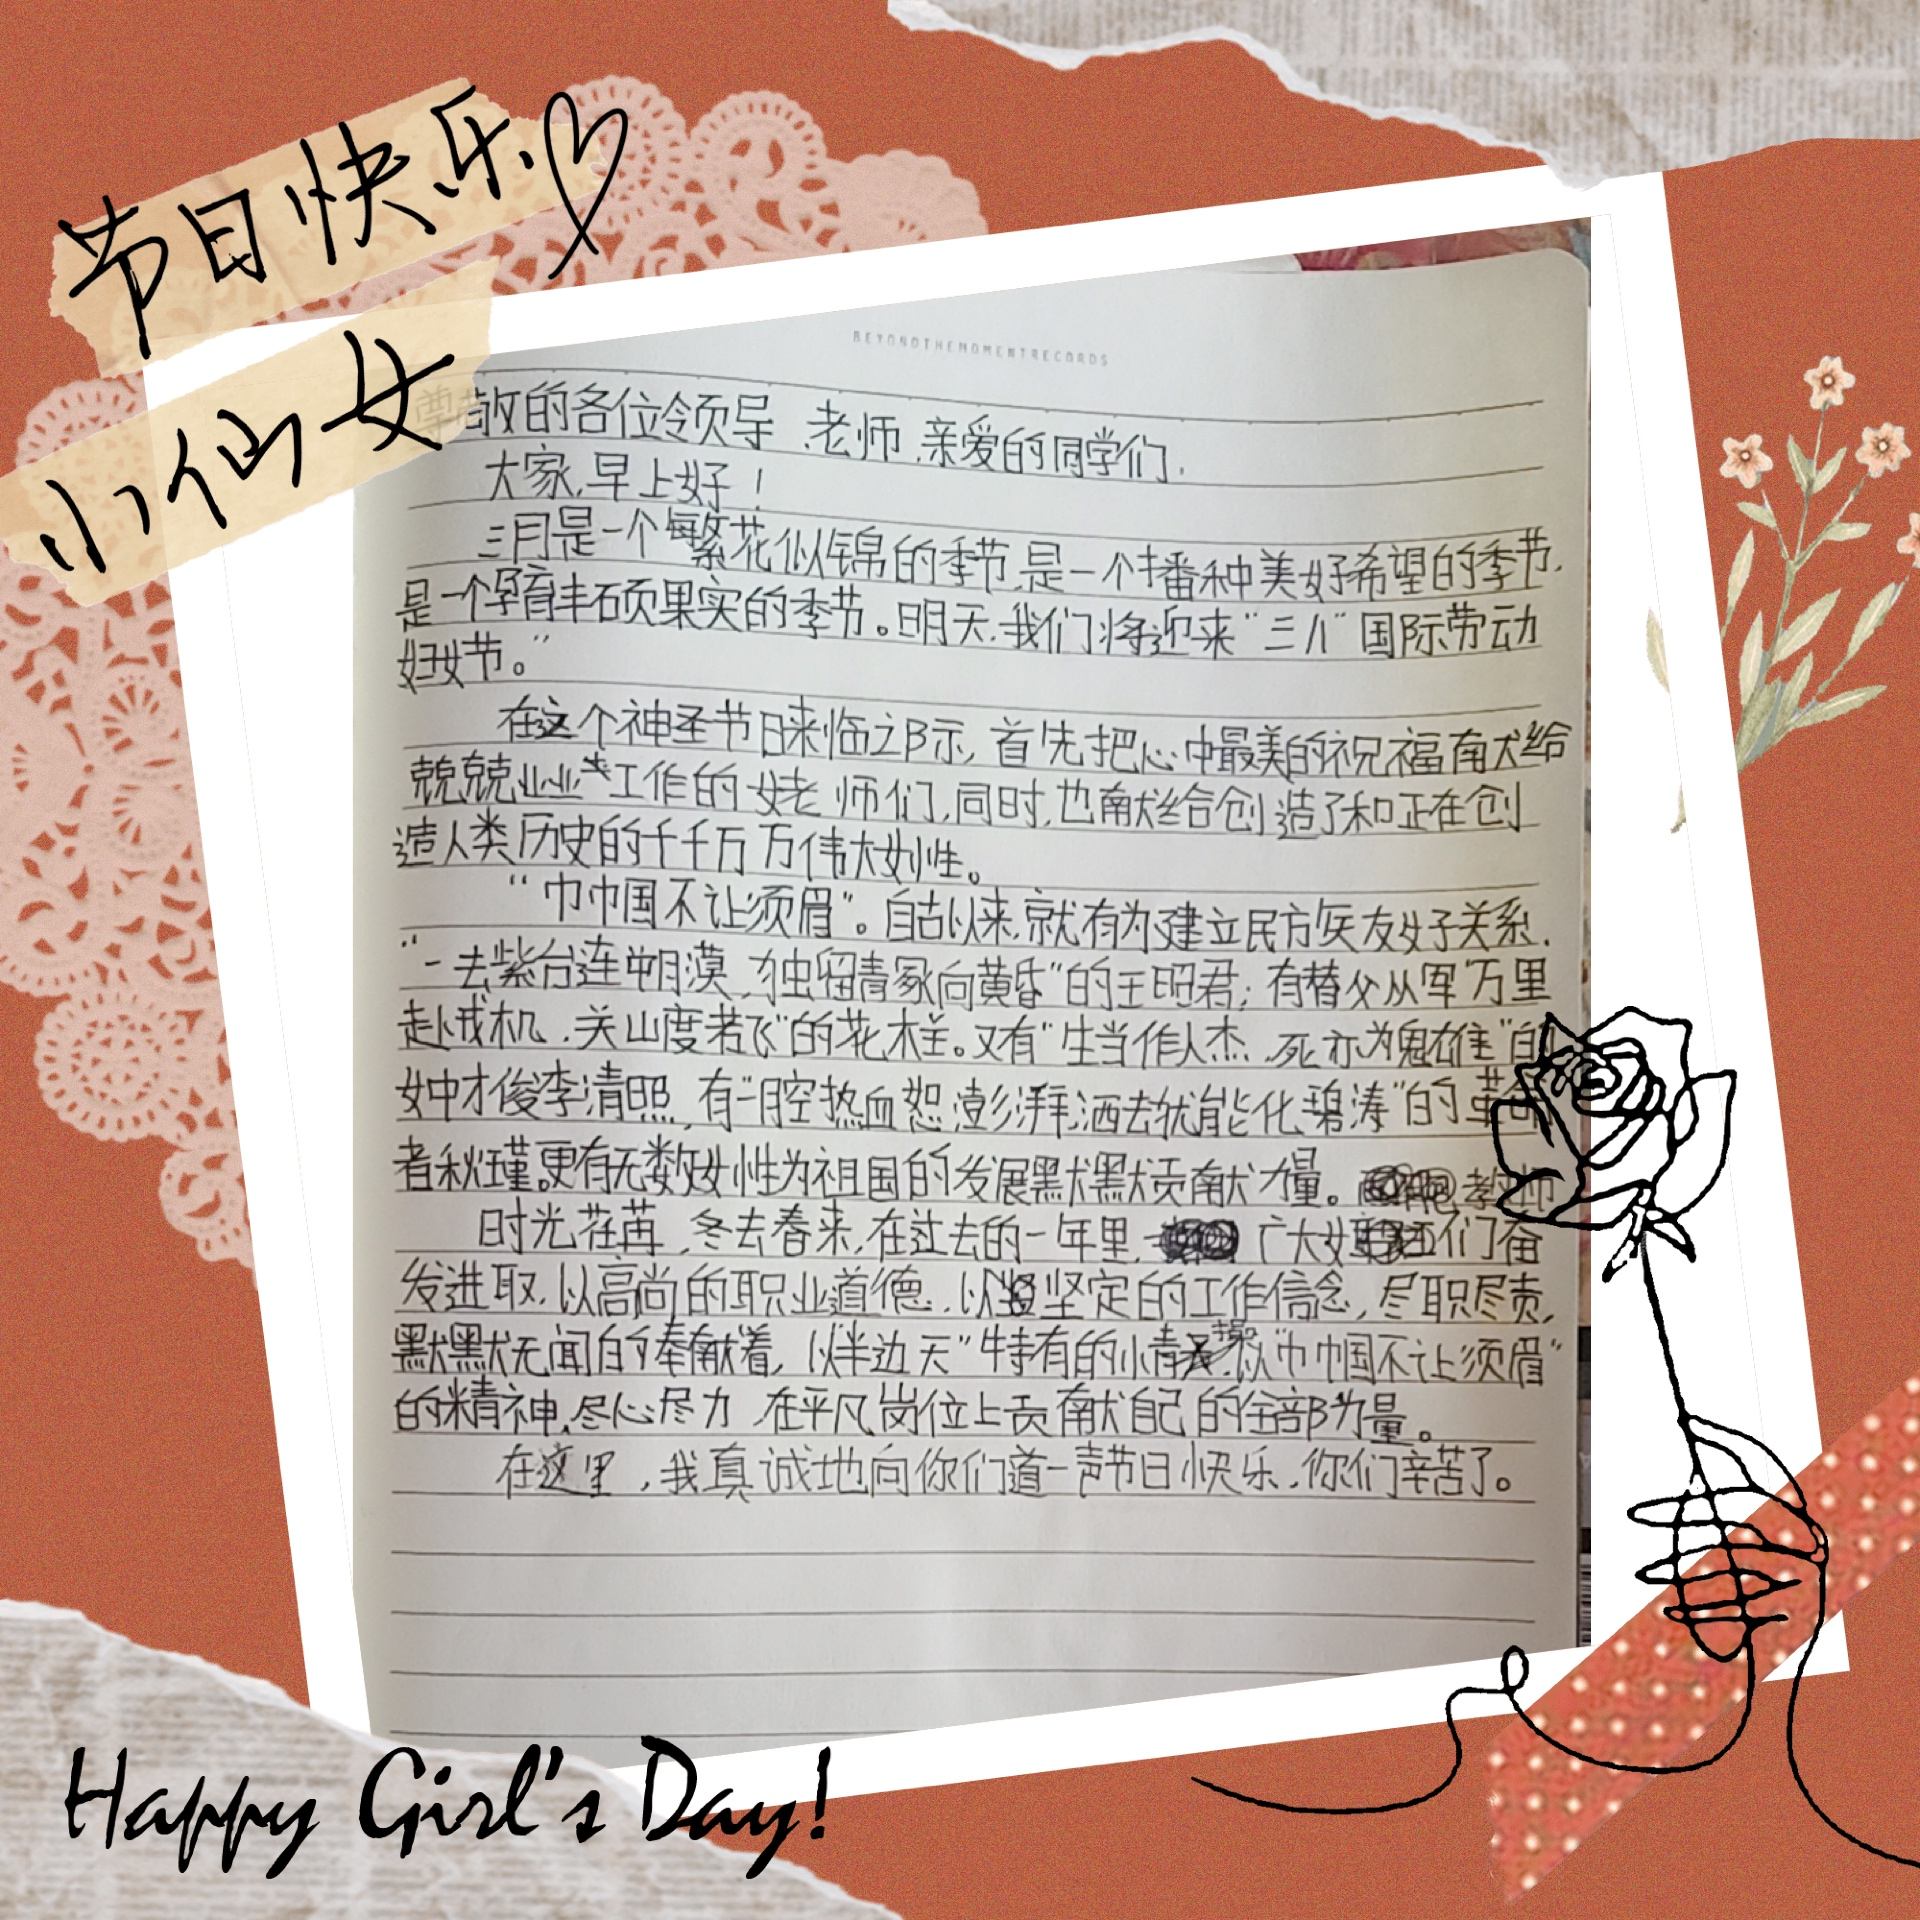 节日快乐
小仙女
BEYONDTHEMOMENTRECORDS
尊敬的各位领导、老师、亲爱的同学们，
大家，早上好！
三月是一个繁花似锦的季节，是一个播种美好希望的季节，
是一个孕育丰硕果实的季节。明天，我们将迎来“三八”国际劳动
妇女节。”
在这个神圣节日来临之际，首先把心中最美的祝福献给
兢兢业业工作的女老师们，同时，也献给创造了和正在创
造人类历史的千千万万伟大女性。
“巾帼不让须眉”。自古以来，就有为建立民族友好关系，
“一去紫台连朔漠，独留青冢向黄昏”的王昭君；有替父从军“万里
赴戎机，关山度若飞”的花木兰。又有“生当作人杰，死亦为鬼雄”的
女中才俊李清照，有“一腔热血恕澎湃，洒去犹能化碧涛”的革命
者秋瑾。更有无数女性为祖国的发展默默贡献力量。
时光荏苒，冬去春来，在过去的一年里，广大女教师们奋
发进取，以高尚的职业道德，以坚定的工作信念，尽职尽责，
默默无闻的奉献着，以“半边天”特有的小情操，以“巾帼不让须眉”
的精神，尽心尽力，在平凡岗位上贡献自己的全部力量。
在这里，我真诚地向你们道一声节日快乐，你们辛苦了。
Happy Girl's Day!